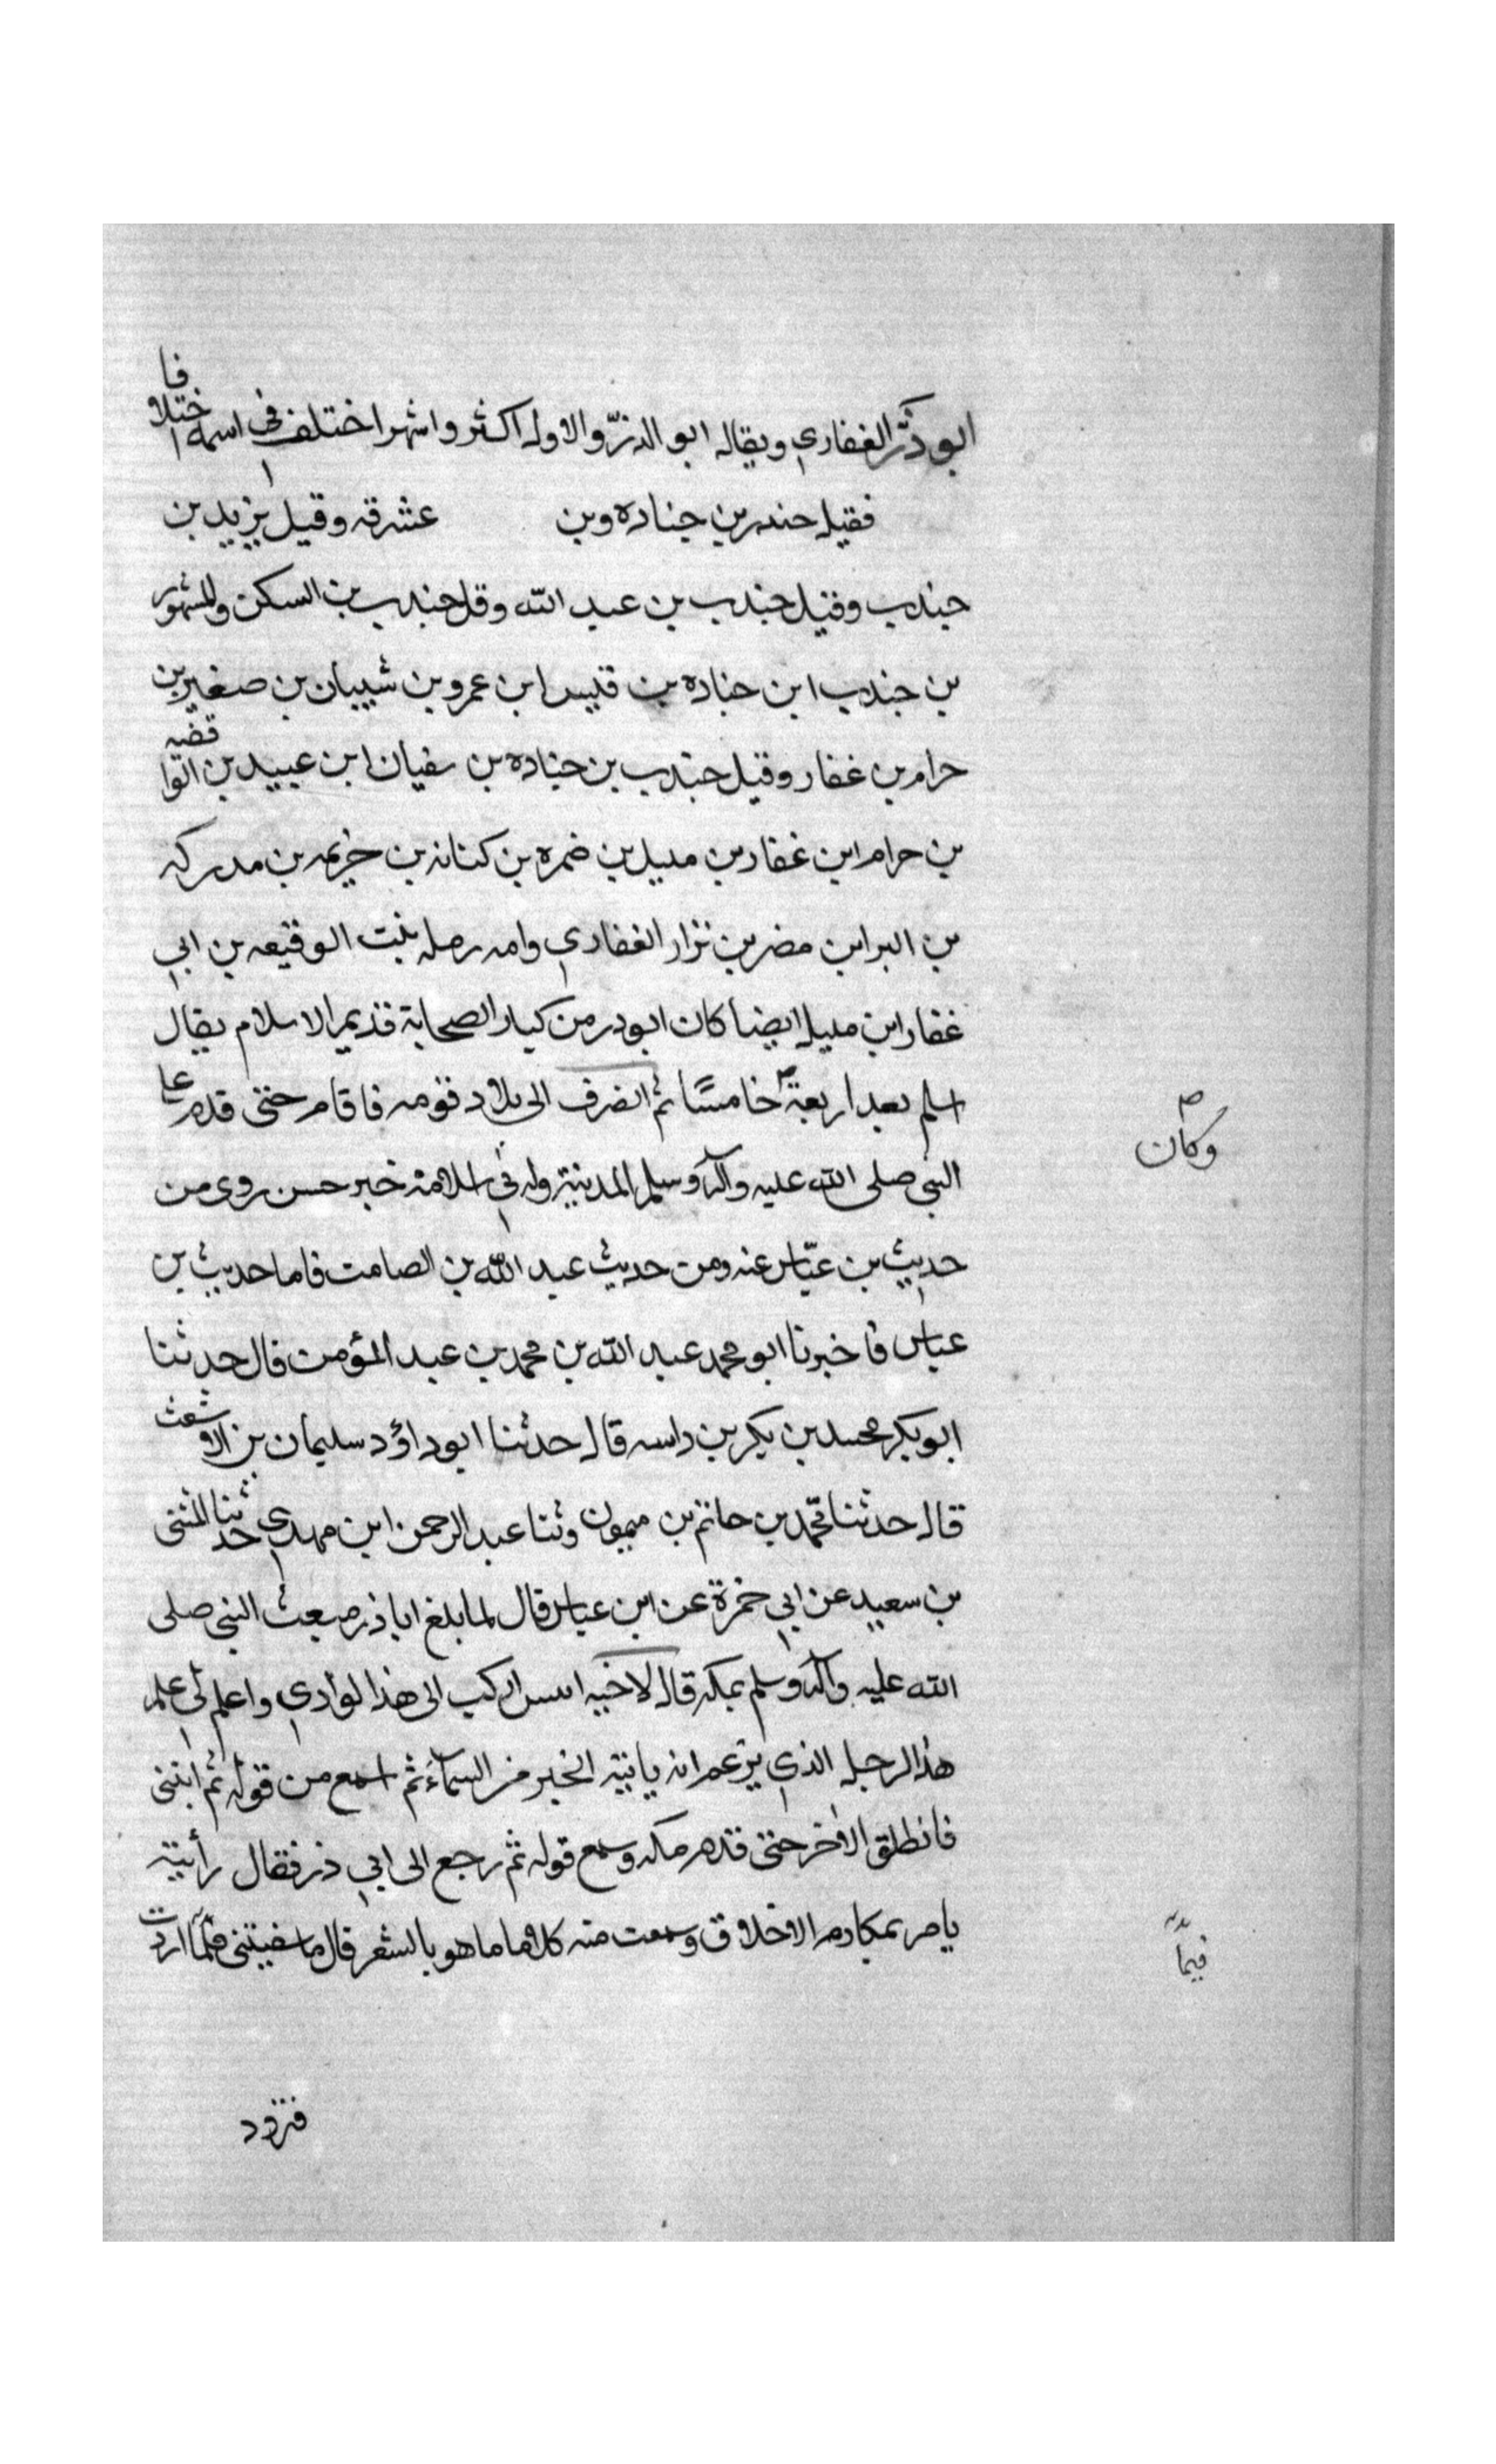 ابو ذَرّ الغفاري ويقال ابو الذرّ والاول اكثر واشهر اختلف في اسمه اختلافا
فقيل جندب بن جناده وبن عشرقه وقيل يزيد بن
جندب وقيل جندب بن عبد الله وقل جندب بن السكن والمشهور
بن جندب ابن جناده بن قيس ابن عمرو بن شيبان بن صغير بن
حرام بن غفار وقيل جندب بن جناده بن سفيان ابن عبيد بن الواقفيه
بن حرام ابن غفار بن مليل بن ضمره بن كنانه بن خزيمه بن مدركه
بن البر ابن مضر بن نزار الغفاري وامه رمله بنت الوقيعه بن ابي
غفار ابن مليل ايضا كان ابو در من كبار الصحابة قديم الاسلام يقال
اسلم بعد اربعة خامسًا ثم انصرف الى بلاد قومه فاقام حتى قدم عا
وكان
النبي صلى الله عليه وآله وسلم المدينة وله في اسلامه خبر حسن روى من
حديث بن عبّاس عنه ومن حديث عبد الله بن الصامت فاما حديث بن
عباس فاخبرنا ابو محمد عبد الله بن محمد بن عبد المؤمن قال حدثنا
ابو بكر محمد بن بكر بن داسه قال حدثنا ابو داؤد سليمان بن الاشعث
قال حدثنا محمّد بن حاتم بن ميمون وثنا عبد الرحمن ابن مهدي حدثنا المثنى
بن سعيد عن ابي حمزة عن ابن عباس قال لما بلغ اباذر مبعث النبي صلى
الله عليه وآله وسلم بمكه قال لاخيه انيس اركب الى هذا لوادي واعلم لي علم
هذا الرجل الذي يزعم انه ياتيه الخبر من السماءَ ثم اسمع من قوله ثم ائتني
فانطلق الاخر حتى قدم مكه وسمع قوله ثم رجع الى ابي ذر فقال رأيته
يامر بمكارم الاخلاق وسمعت منه كلاما ما هو بالشعر قال ما شفيتني فيما اردت
فيماً
فتزود